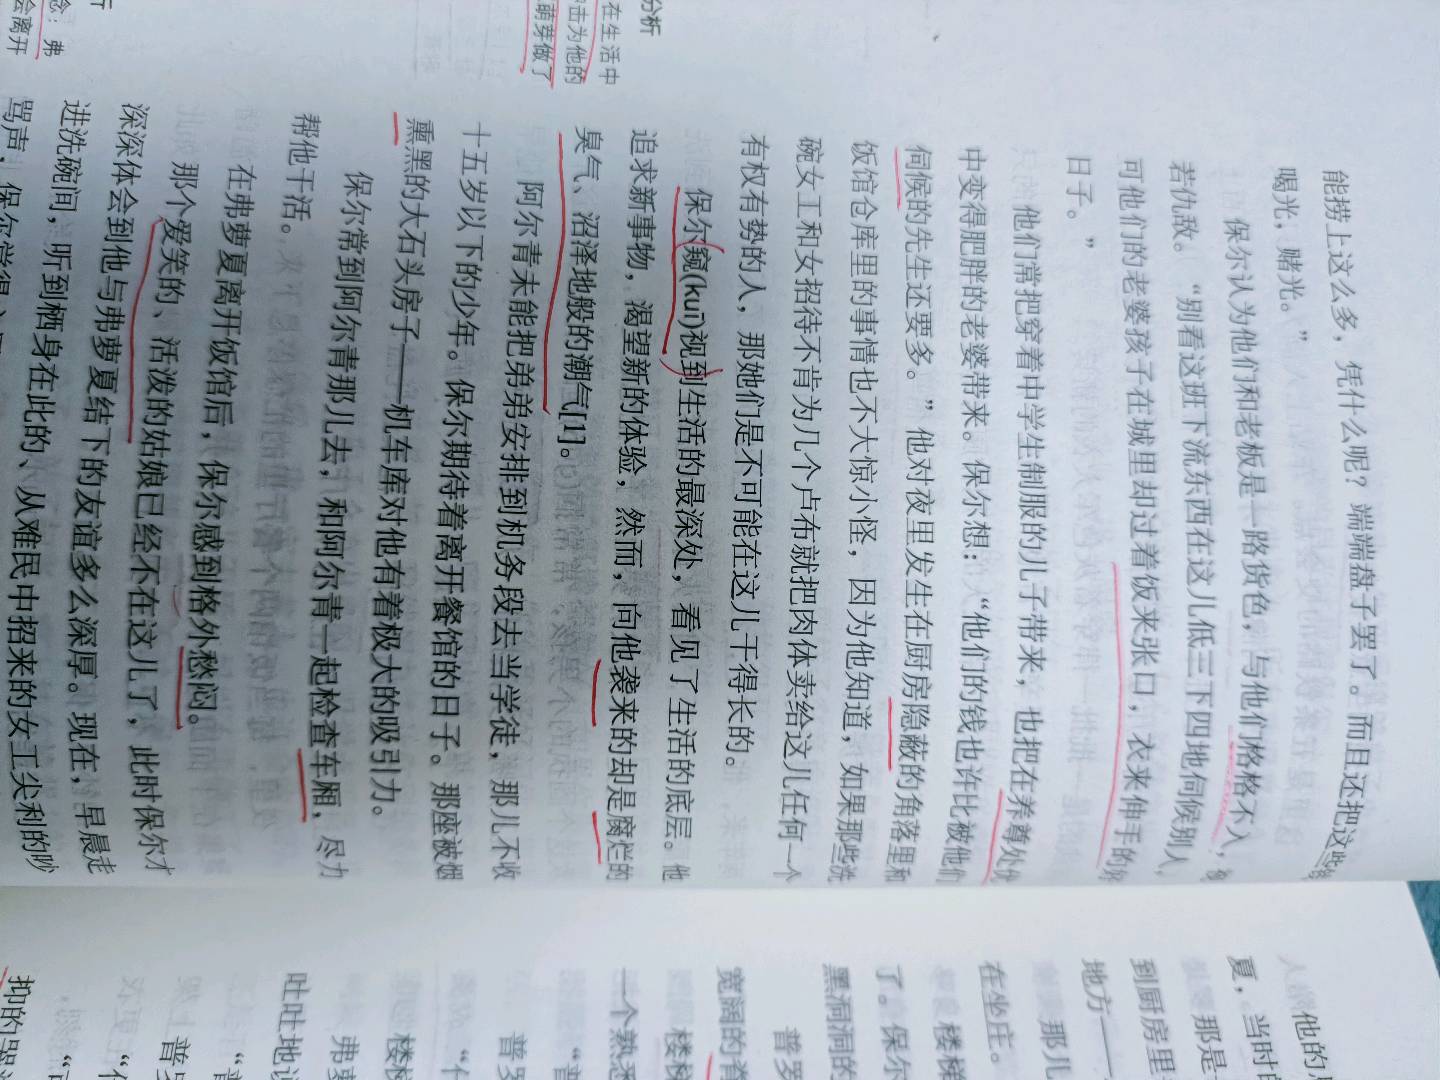 能捞上这么多，凭什么呢？端端盘子罢了。而且还把这些
喝光，赌光。”
保尔认为他们和老板是一路货色，与他们格格不入，
若仇敌。“别看这班下流东西在这儿低三下四地伺候别人，
可他们的老婆孩子在城里却过着饭来张口，衣来伸手的
日子。”
他们常把穿着中学生制服的儿子带来，也把在养尊处优
中变得肥胖的老婆带来。保尔想：“他们的钱也许比被他们
伺候的先生还要多。”他对夜里发生在厨房隐蔽的角落里和
饭馆仓库里的事情也不大惊小怪，因为他知道，如果那些洗
碗女工和女招待不肯为几个卢布就把肉体卖给这儿任何一个
有权有势的人，那她们是不可能在这儿干得长的。
保尔窥(kuī)视到生活的最深处，看见了生活的底层。他
追求新事物，渴望新的体验，然而，向他袭来的却是腐烂的
臭气、沼泽地般的潮气[1]。
阿尔青未能把弟弟安排到机务段去当学徒，那儿不收
十五岁以下的少年。保尔期待着离开餐馆的日子。那座被烟
熏黑的大石头房子——机车库对他有着极大的吸引力。
保尔常到阿尔青那儿去，和阿尔青一起检查车厢，尽力
帮他干活。
在弗萝夏离开饭馆后，保尔感到格外愁闷。
那个爱笑的、活泼的姑娘已经不在这儿了，此时保尔才
深深体会到他与弗萝夏结下的友谊多么深厚。现在，早晨走
进洗碗间，听到栖身在此的、从难民中招来的女工尖利的吵
骂声，保尔觉得
分析
在生活中
击为他的
萌芽做了
念：弗
会离开
他的
夏，当时的
那是
到厨房里
地方——
那儿
在坐庄。
楼梯
了。保尔
黑洞洞的
普罗
宽阔的脊
楼梯
一个熟
普罗
“什
楼梯
弗萝
吐吐地说
“普
普罗
“什
抑的哭